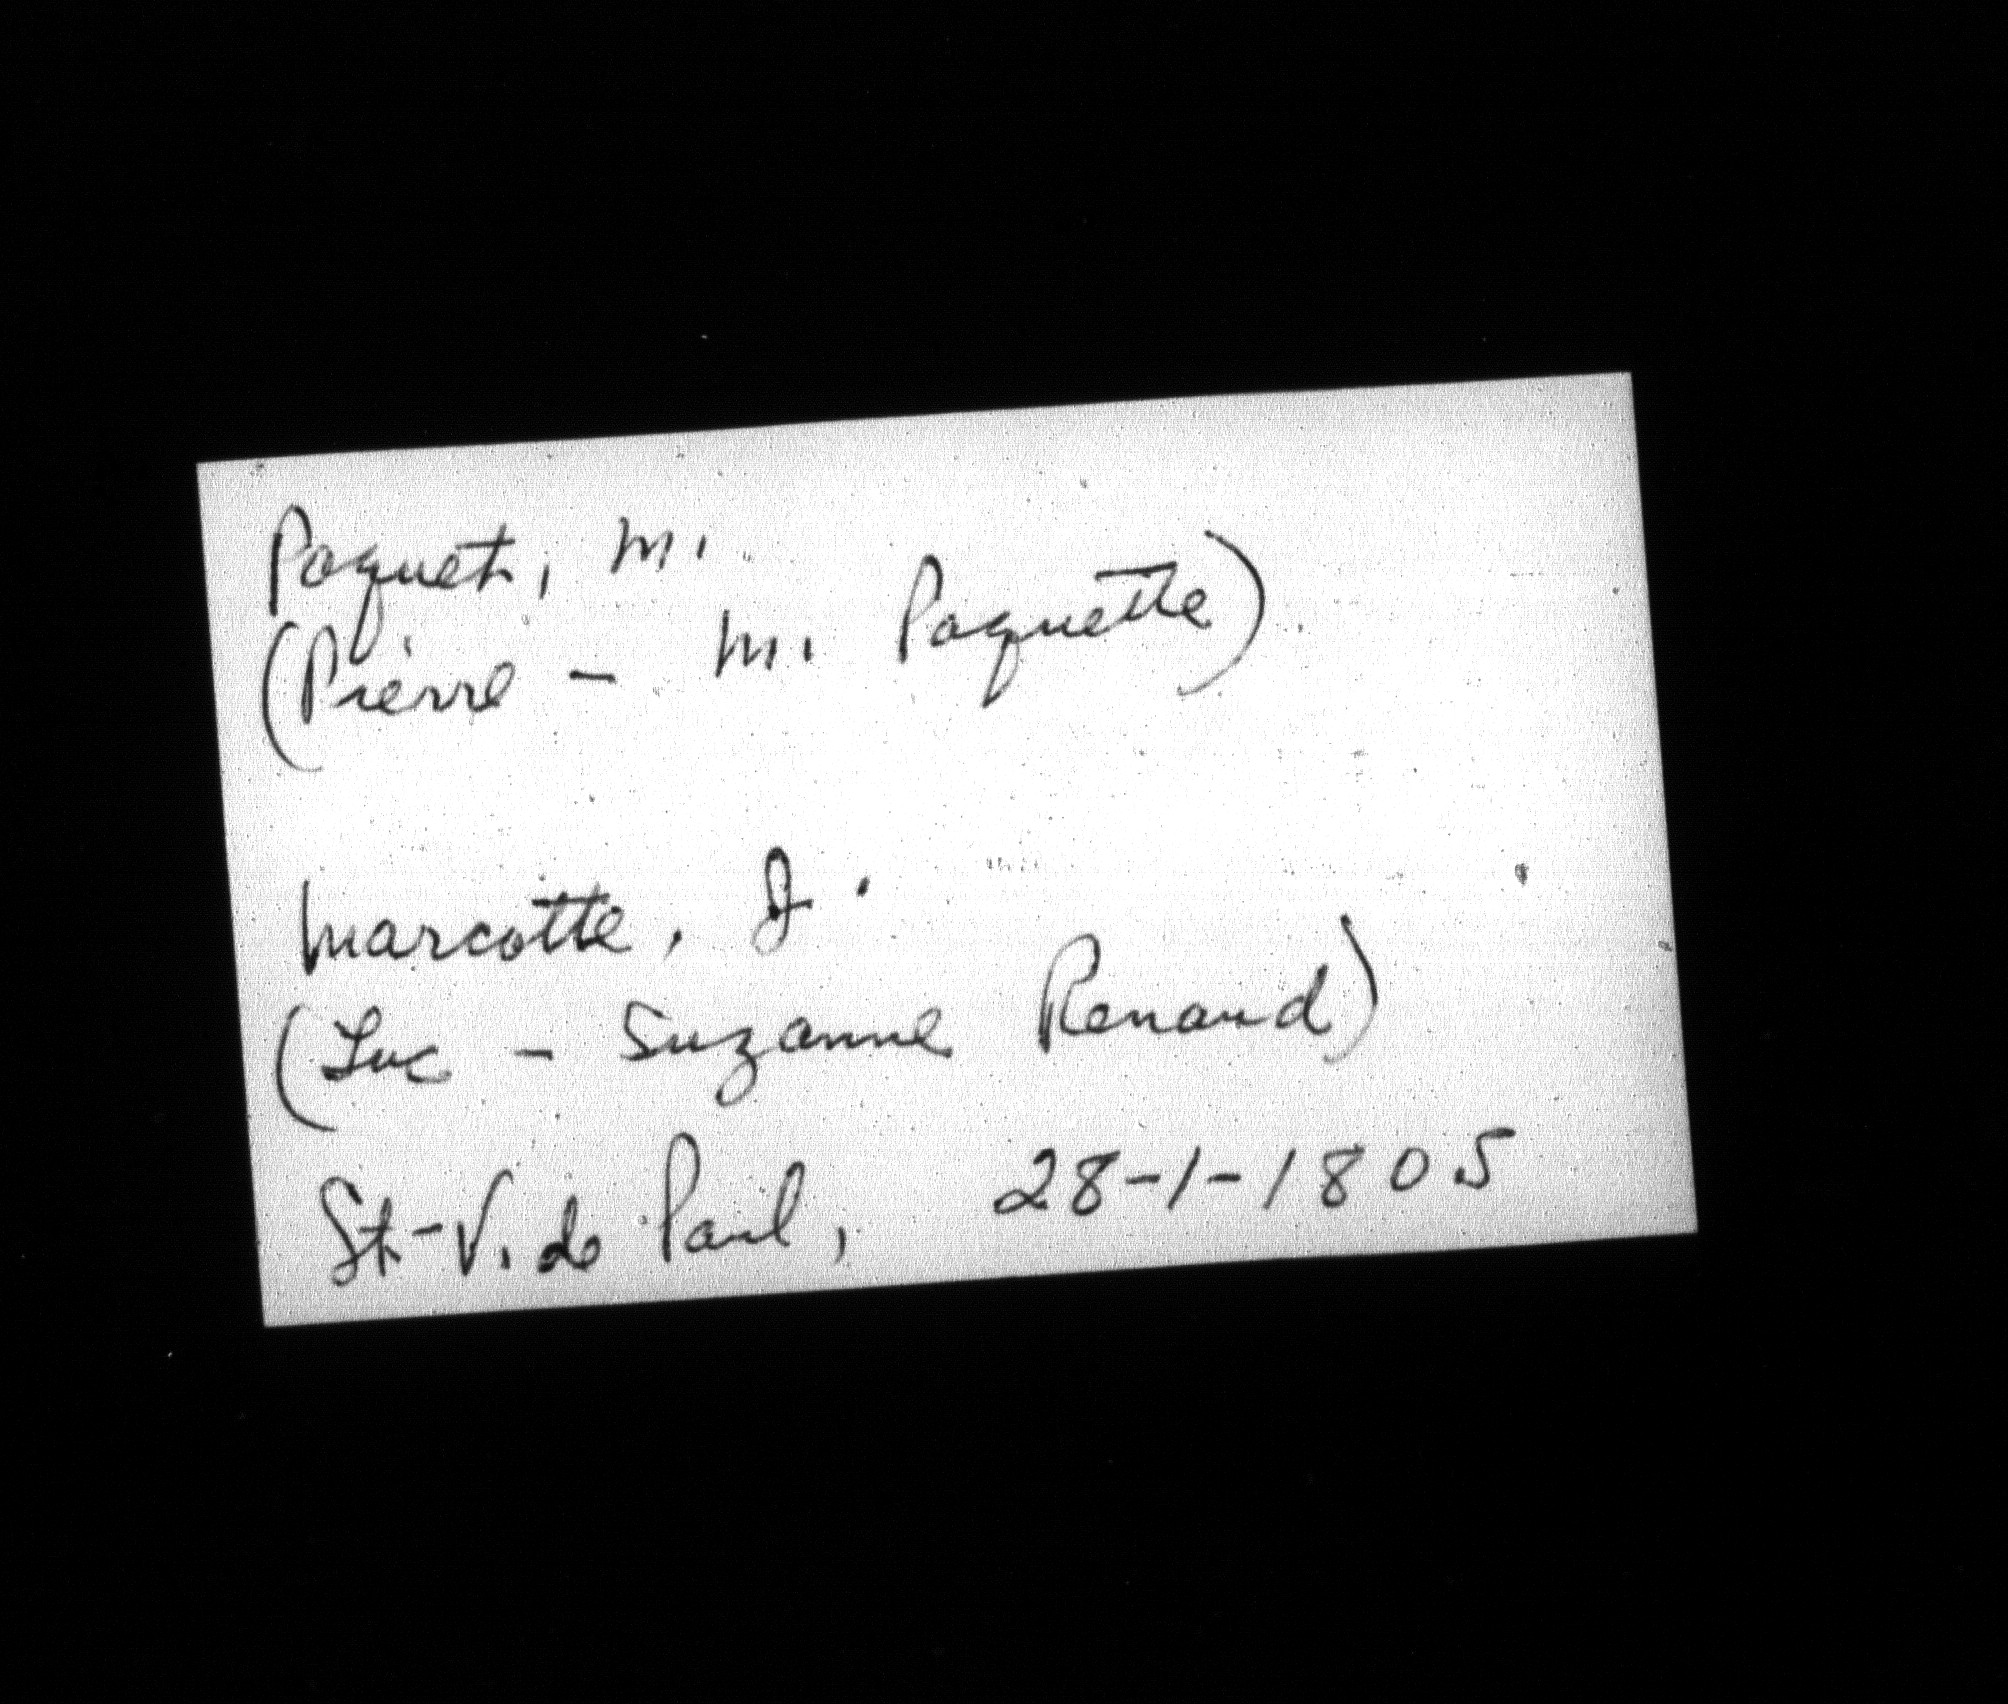 Paquet, M.
(Pierre - M. Paquette).
Marcotte, J.
(Luc - Suzanne Renaud)
St-V. de Paul, 28-1-1805